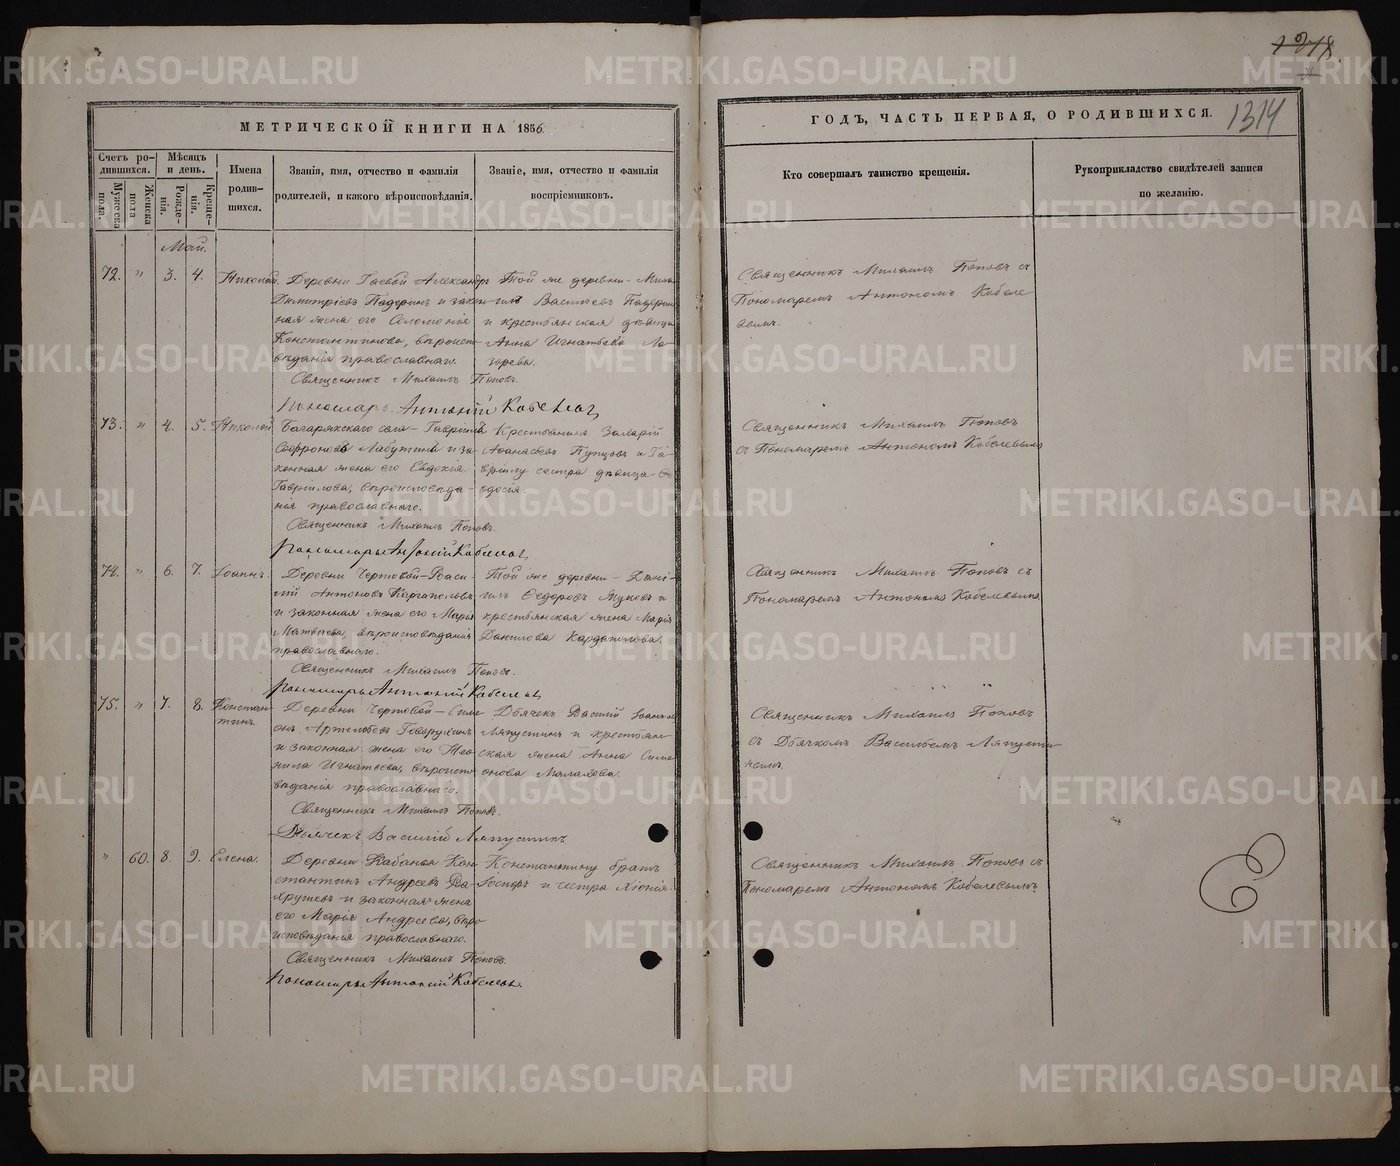 1218
1314
МЕТРИЧЕСКОЙ КНИГИ НА 1856.
ГОДЪ, ЧАСТЬ ПЕРВАЯ, О РОДИВШИХСЯ.
Счетъ ро-
дившихся.
Мѣсяцъ
и день.
Мужеска
пола.
Женска
пола
Рожде-
нія.
Креще-
нія.
Имена
родив-
шихся.
Званія, имя, отчество и фамилія
родителей, и какого вѣроисповѣданія.
Званіе, имя, отчество и фамилія
воспріемниковъ.
Кто совершалъ таинство крещенія.
Рукоприкладство свидѣтелей записи
по желанію.
Май.
72. " 3. 4. Николай
Деревни Гаевой Александръ
Димитріевъ Падеринъ и закон-
ная жена его Соломонія
Константинова, вѣроиспо-
вѣданія православнаго.
Священникъ Михаилъ Поповъ.
Пономарь Антоній Кобелевъ
Той же деревни - Миха-
илъ Васильевъ Падерин
и крестьянская дѣвица
Анна Игнатьева Ла-
зорева.
Священникъ Михаилъ Поповъ с
Пономаремъ Антономъ Кобеле-
вымъ.
73. " 4. 5. Николай
Багарякскаго села - Гавріилъ
Софроновъ Лабутинъ и за-
конная жена его Евдокія
Гавріилова, вѣроисповѣда-
нія православнаго.
Священникъ Михаилъ Поповъ.
Пономарь Антоній Кобелевъ
Крестьянинъ Захарій
Аѳанасьевъ Пупцовъ и Га-
врiилу сестра дѣвица Ѳе-
одосія.
Священникъ Михаилъ Поповъ
съ Пономаремъ Антономъ Кобелевымъ
74. " 6. 7. Іоаннъ.
Деревни Чертовой - Васи-
лій Антоновъ Каргаполовъ
и законная жена его Марія
Матвѣева, вѣроисповѣданія
православнаго.
Священникъ Михаилъ Поповъ.
Пономарь Антоній Кобелевъ
Той же деревни - Дані-
илъ Ѳедоровъ Жуковъ и
крестьянская жена Марія
Данилова Кардаполова.
Священникъ Михаилъ Поповъ съ
Пономаремъ Антономъ Кобелевымъ
75. " 7. 8. Констан-
тинъ.
Деревни Чертовой - Симе-
онъ Артемьевъ Говорухинъ
и законная жена его Ѳео-
нила Игнатьева, вѣроиспо-
вѣданія православнаго.
Священникъ Михаилъ Поповъ.
Дьячекъ Василій Ляпустинъ
Дьячекъ Василій Іоаннов
Ляпустинъ и крестьян-
ская жена Анна Симе-
онова Малахова.
Священникъ Михаилъ Поповъ
съ Дьячкомъ Васильемъ Ляпусти-
нымъ.
" 60. 8. 9. Елена.
Деревни Кабанья Кон-
стантинъ Андреевъ Ва-
хрушевъ и законная жена
его Марія Андреева, вѣро-
исповѣданія православнаго.
Священникъ Михаилъ Поповъ.
Пономарь Антоній Кобелевъ.
Константину братъ
Іосифъ и сестра Хіонія.
Священникъ Михаилъ Поповъ съ
Пономаремъ Антономъ Кобелевымъ
METRIKI.GASO-URAL.RU